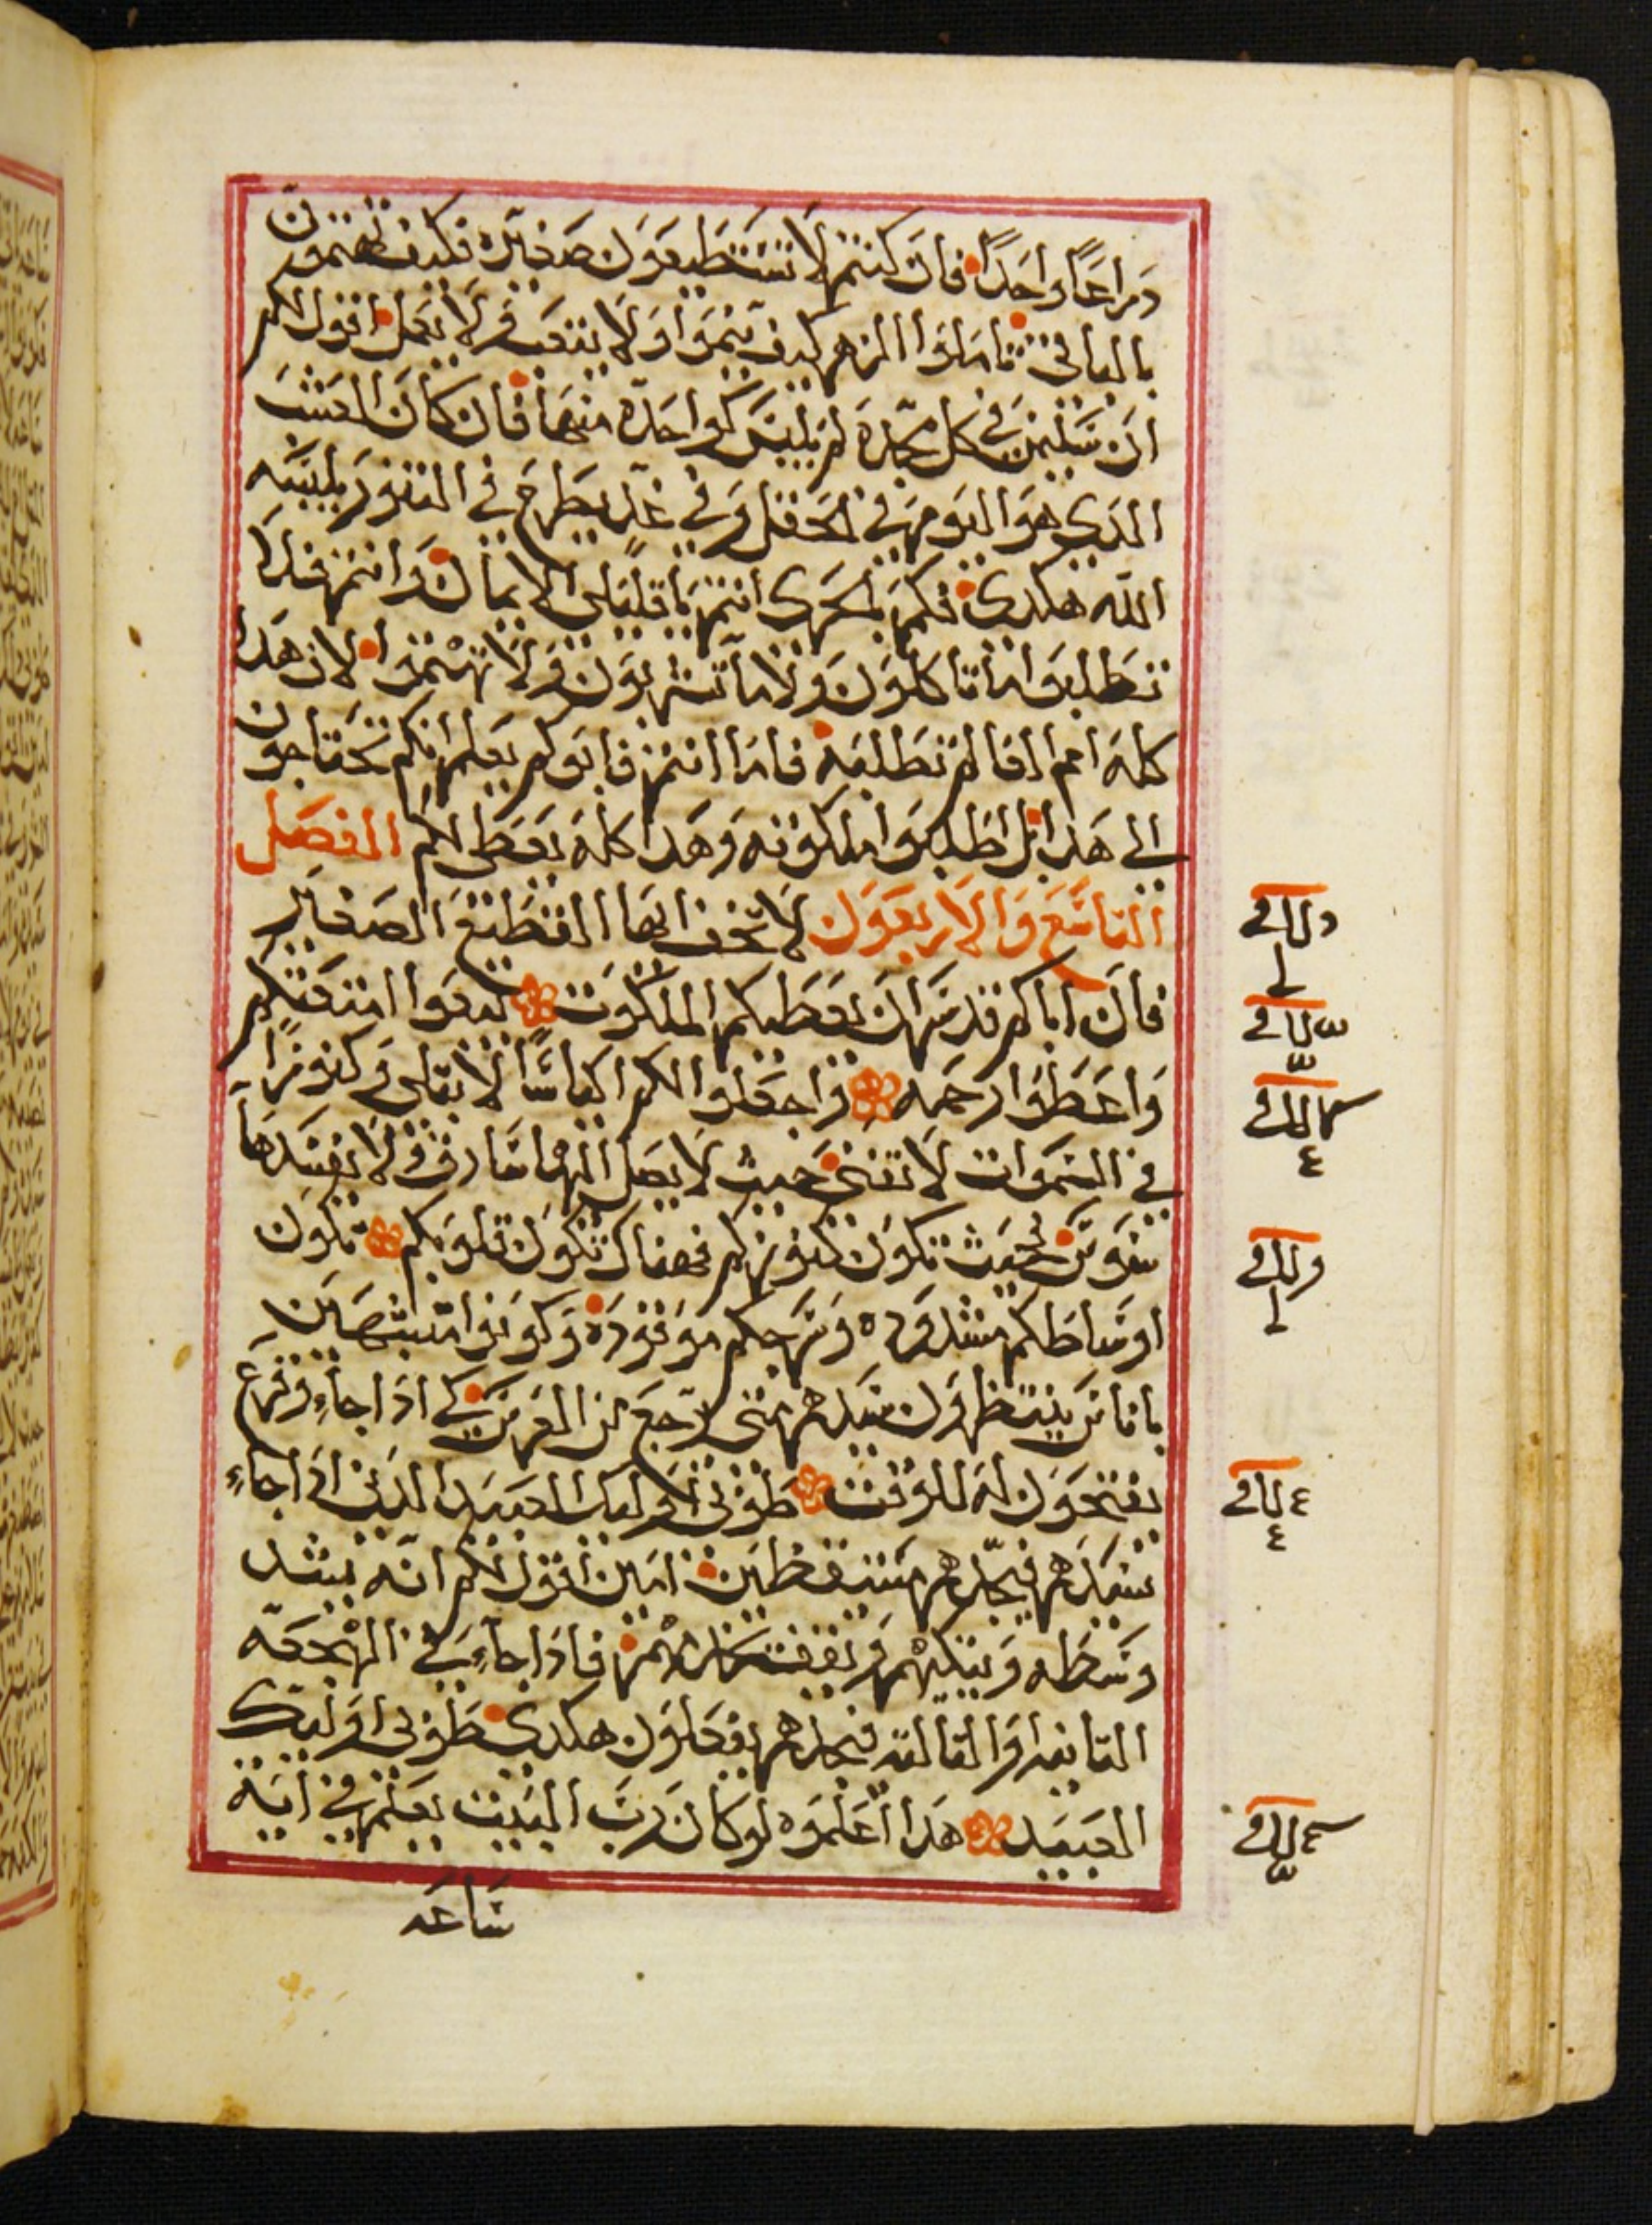 دراعًا واحدًا فان كنتم لا تستطيعون صغايره فكيف تهتمون
بالباقي تاملوا الزهر كيف ينموا ولا يتعب ولا يعمل اقول لكم
ان سليمن في كل مجده لم يلبس كواحدة منها فان كان العشب
الدي هو اليوم في الحقل وفي غدٍ يطرح في التنور يلبسه
الله هكدى فكم بالحرى انتم يا قليلى الايمان وانتم فلا
تطلبوا ما تاكلون ولا ما تشربون ولا تهتموا لان هدا
كله امم العالم تطلبه فاما انتم فابوكم يعلم انكم تحتاجون
الى هدا بل اطلبوا ملكوته وهدا كله يعطى لكم الفصل
التاسع والاربعون لا تخف ايها القطيع الصغير
فان اباكم قد سر ان يعطيكم الملكوت بيعوا امتعتكم
واعطوا رحمه واجعلوا لكم اكياسًا لا تبلى وكنوزًا
في السموات لا تفنى حيث لا يصل اليها سارق ولا يفسدها
سوس حيث تكون كنوزكم فهناك تكون قلوبكم تكون
اوساطكم مشدوده وسرجكم موقوده وكونوا متشبهين
باناس ينتظرون سيدهم متى يرجع من العرس كي ادا جاء وقرع
يفتحون له للوقت طوبى لاوليك العبيد الدين ادا جاء
سيدهم فيجدهم مستيقظين امين اقول لكم انه يشد
وسطه ويتكيهم ويقف يخدمهم فادا جاء في الهجعه
التانيه او التالته فيجدهم يفعلون هكدى طوبى اوليك
العبيد هدا اعلموه لو كان رب البيت يعلم في اية
ساعه